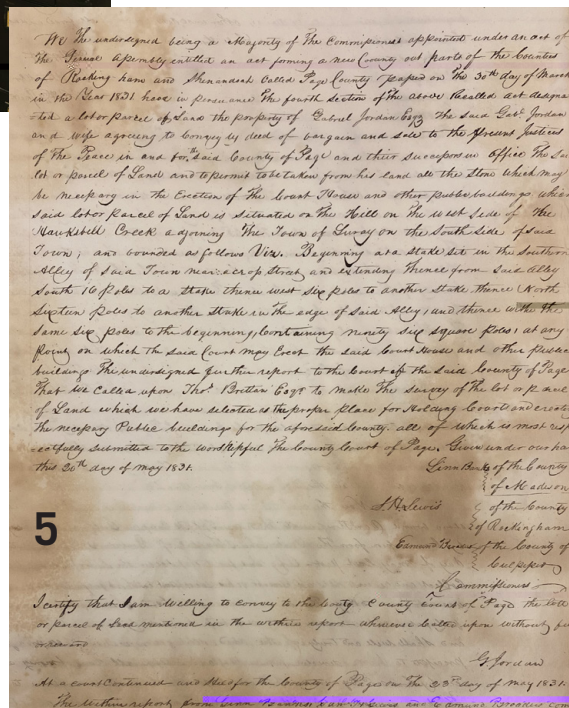 We The undersigned being a Majority of The Commissioners appointed under an act of
the General Assembly entitled an act forming a new County out parts of the Counties
of Rocking ham and Shenandoah Called Page County passed on The 30th day of March
in the Year 1831 have in persuance The fourth section of the above Recalled act designa
ted a lot or parcel of Land the property of Gabriel Jordan Esqr the said Gabl. Jordan
and wife agreeing to convey by deed of bargain and sale to the present Justices
of The Peace in and for the said County of Page and their successors in Office The said
lot or parcel of Land and to permit to be taken from his land all the Stone which may
be necessary in the Erection of The Court House and other public buildings, which
said lot or parcel of Land is situated on the Hill on the west Side of the
Hawksbill Creek ajoining The Town of Luray on the South Side of said
Town; and bounded as follows Viz. Beginning at a Stake set in the Southern
Alley of said Town street and extending thence from said Alley
South 16 Poles to a Stake thence west six poles to another stake thence North
sixteen Poles to another Stake in the edge of Said Alley, and thence with the
same six poles to the beginning, Containing ninety six square Poles; at any
Point on which the said Court may Erect the said Court House and other public
buildings The undersigned further report to the Court of the said County of Page
That we Called upon Thos. Brittan Esqr. to make The survey of the lot or parcel
of Land which we have selected as the proper place for Holding Courts and
the necessary Public buildings for the aforesaid County. all of which is most resp
ectfully submitted to the Worshipful The County Court of Page. Given under our
this 20th day of May 1831.
Linn Banks of the County
of Madison
S. H. Lewis of the County
of Rockingham
Edmund of the County of
Culpeper
Commissioners
5
I certify that I am Willing to convey to the County Court of Page the lot
or parcel of Land mentioned in the within report whenever Called upon without
G Jordan
At a court Continued and Held for the County of Page on The 23rd day of May 1831.
The Within report from